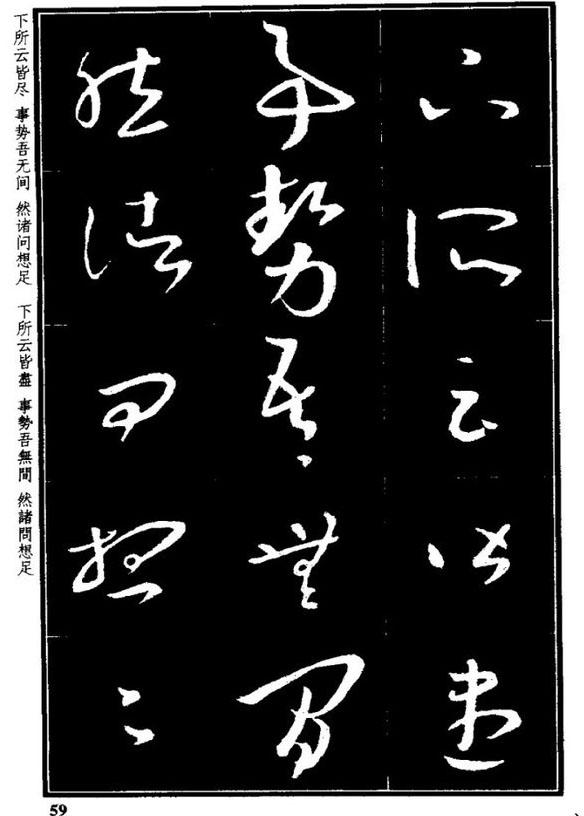 下所云皆盡
事勢吾無間
然諸問想足
下所云皆尽 事势吾无间 然诸问想足 下所云皆盡 事勢吾無間 然諸問想足
59